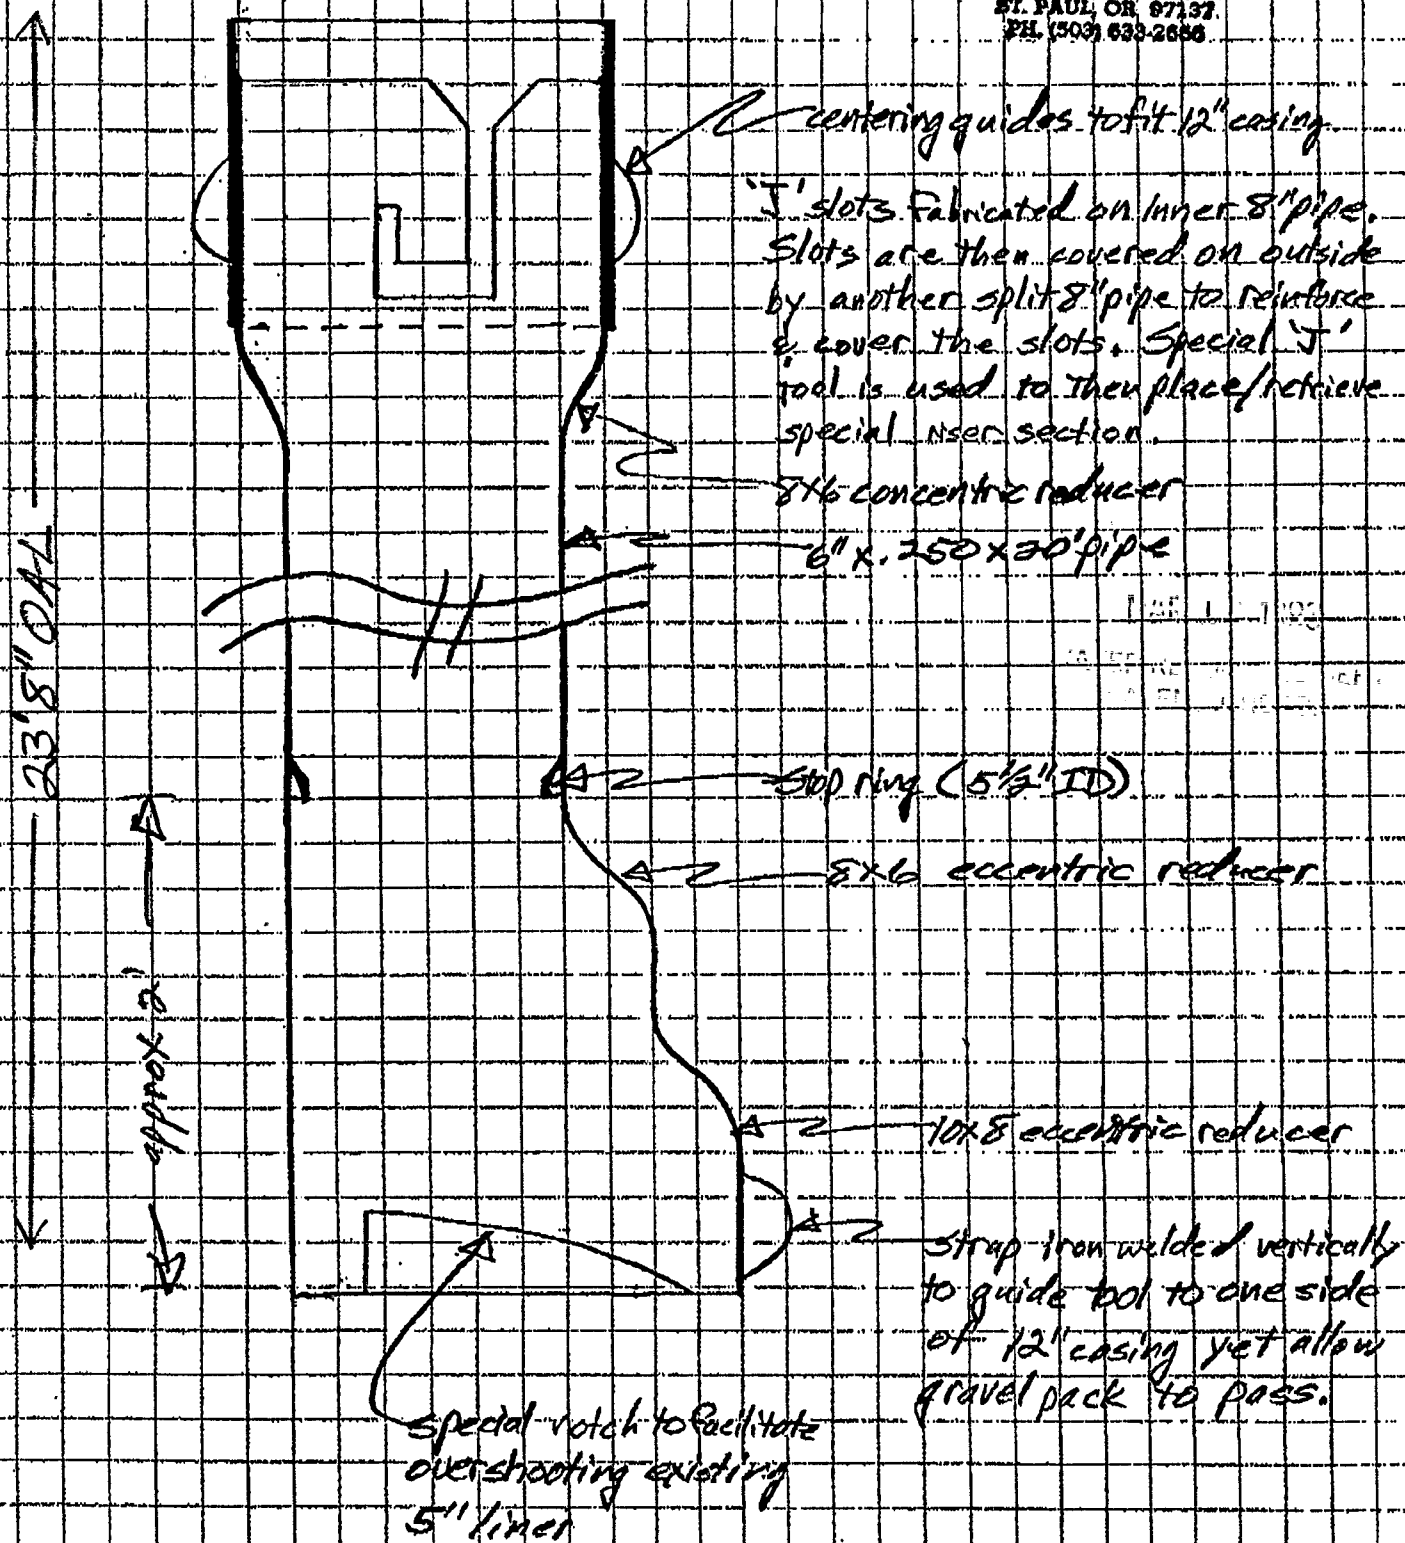 ST. PAUL, OR 97137
PH. (503) 633-2666
centering guides to fit 12" casing.
'J' slots fabricated on inner 8" pipe.
Slots are then covered on outside
by another split 8" pipe to reinforce
& cover the slots. Special 'J'
Tool is used to then place/retrieve
special riser section.
8x6 concentric reducer
6" x .250 x 20' pipe
23'8" OAL
Stop ring (5 1/2" ID)
8x6 eccentric reducer
approx 2'
10x8 eccentric reducer
Strap iron welded vertically
to guide tool to one side
of 12" casing yet allow
gravel pack to pass.
special notch to facilitate
overshooting existing
5" liner